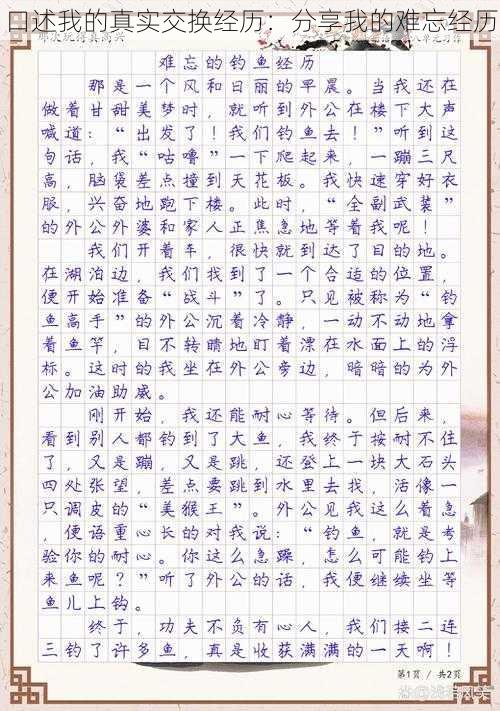 口述我的真实交换经历：分享我的难忘经历
难忘的钓鱼经历
那是一个风和日丽的早晨。当我还在
做着甘甜美梦时，就听到外公在楼下大声
喊道：“出发了！我们钓鱼去！”听到这
句话，我“咕噜”一下爬起来，一蹦三尺
高，脑袋差点撞到天花板。我快速穿好衣
服，兴奋地跑下楼。此时，“全副武装”
的外公外婆和家人正焦急地等着我呢！
我们开着车，很快就到达了目的地。
在湖泊边，我们找到了一个合适的位置，
便开始准备“战斗”了。只见被称为“钓
鱼高手”的外公沉着冷静，一动不动地拿
着鱼竿，目不转睛地盯着漂在水面上的浮
标。这时的我坐在外公旁边，暗暗的为外
公加油助威。
刚开始，我还能耐心等待。但后来，
看到别人都钓到了大鱼，我终于按耐不住
了，又是蹦，又是跳，还登上一块大石头
四处张望，差点要跳到水里去找，活像一
只调皮的“美猴王”。外公见我这么着急
，便语重心长的对我说：“钓鱼，就是考
验你的耐心。你这么急躁，怎么可能钓上
来鱼呢？”听了外公的话，我便继续坐等
鱼儿上钩。
终于，功夫不负有心人，我们接二连
三钓了许多鱼，真是收获满满的一天啊！
第1页 / 共2页